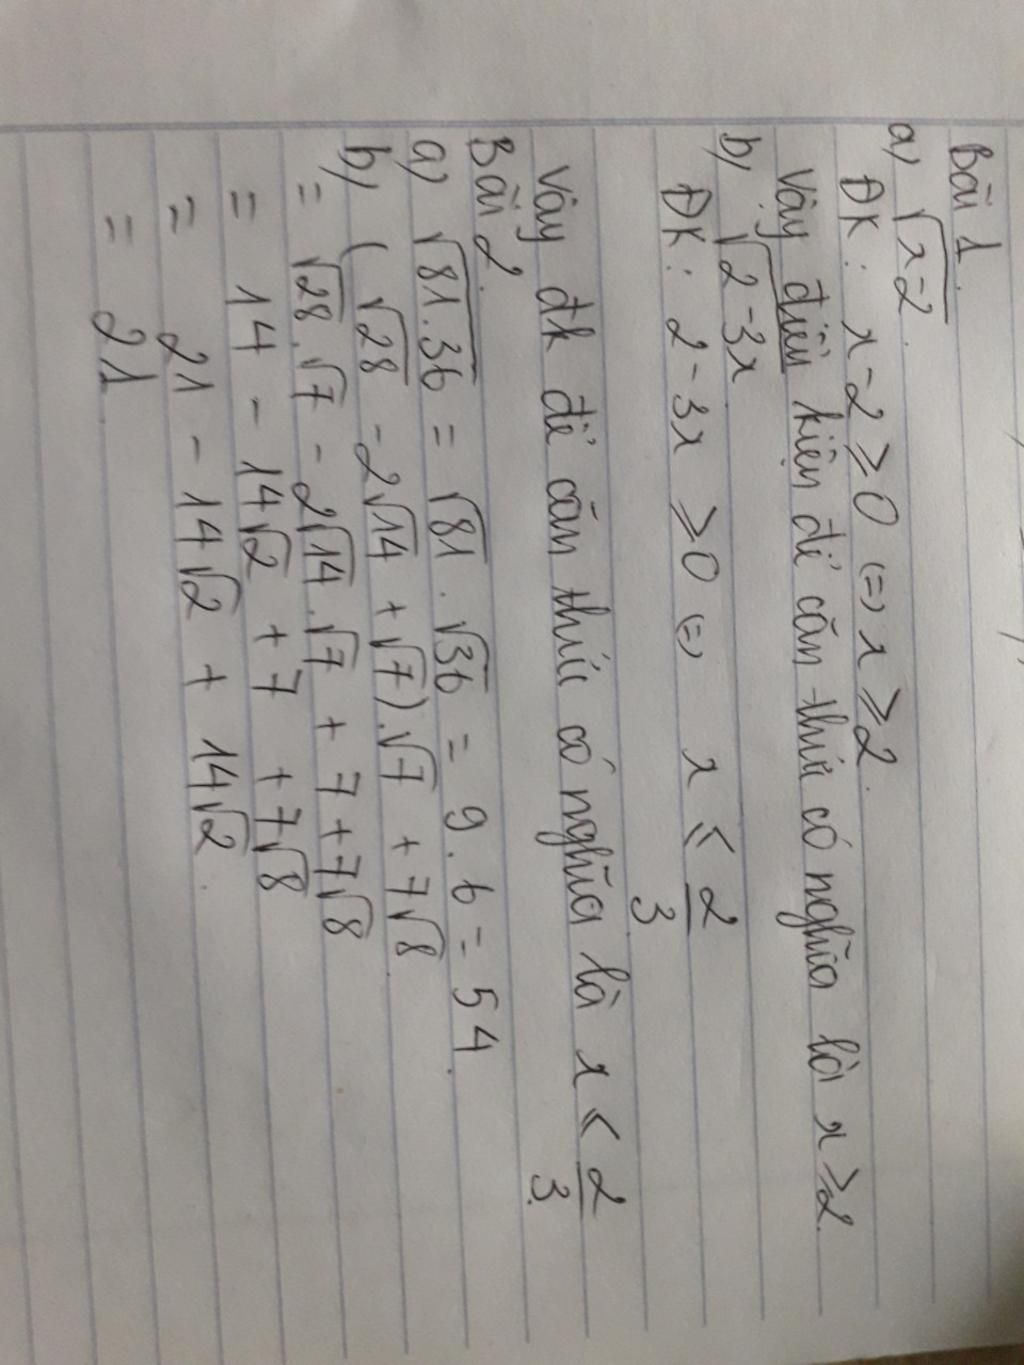 Bài 1.
a) √x-2.
ĐK: x-2 ≥ 0 (=) x ≥ 2.
Vậy điều kiện để căn thức có nghĩa là x ≥ 2.
b) √2-3x
ĐK: 2-3x ≥ 0 (=) x ≤ 2/3
Vậy đk để căn thức có nghĩa là x < 2/3.
Bài 2.
a) √81.36 = √81 . √36 = 9 . 6 = 54.
b) (√28 - 2√14 + √7).√7 + 7√8
= √28.√7 - 2√14.√7 + 7 + 7√8
= 14 - 14√2 + 7 + 7√8
= 21 - 14√2 + 14√2.
= 21